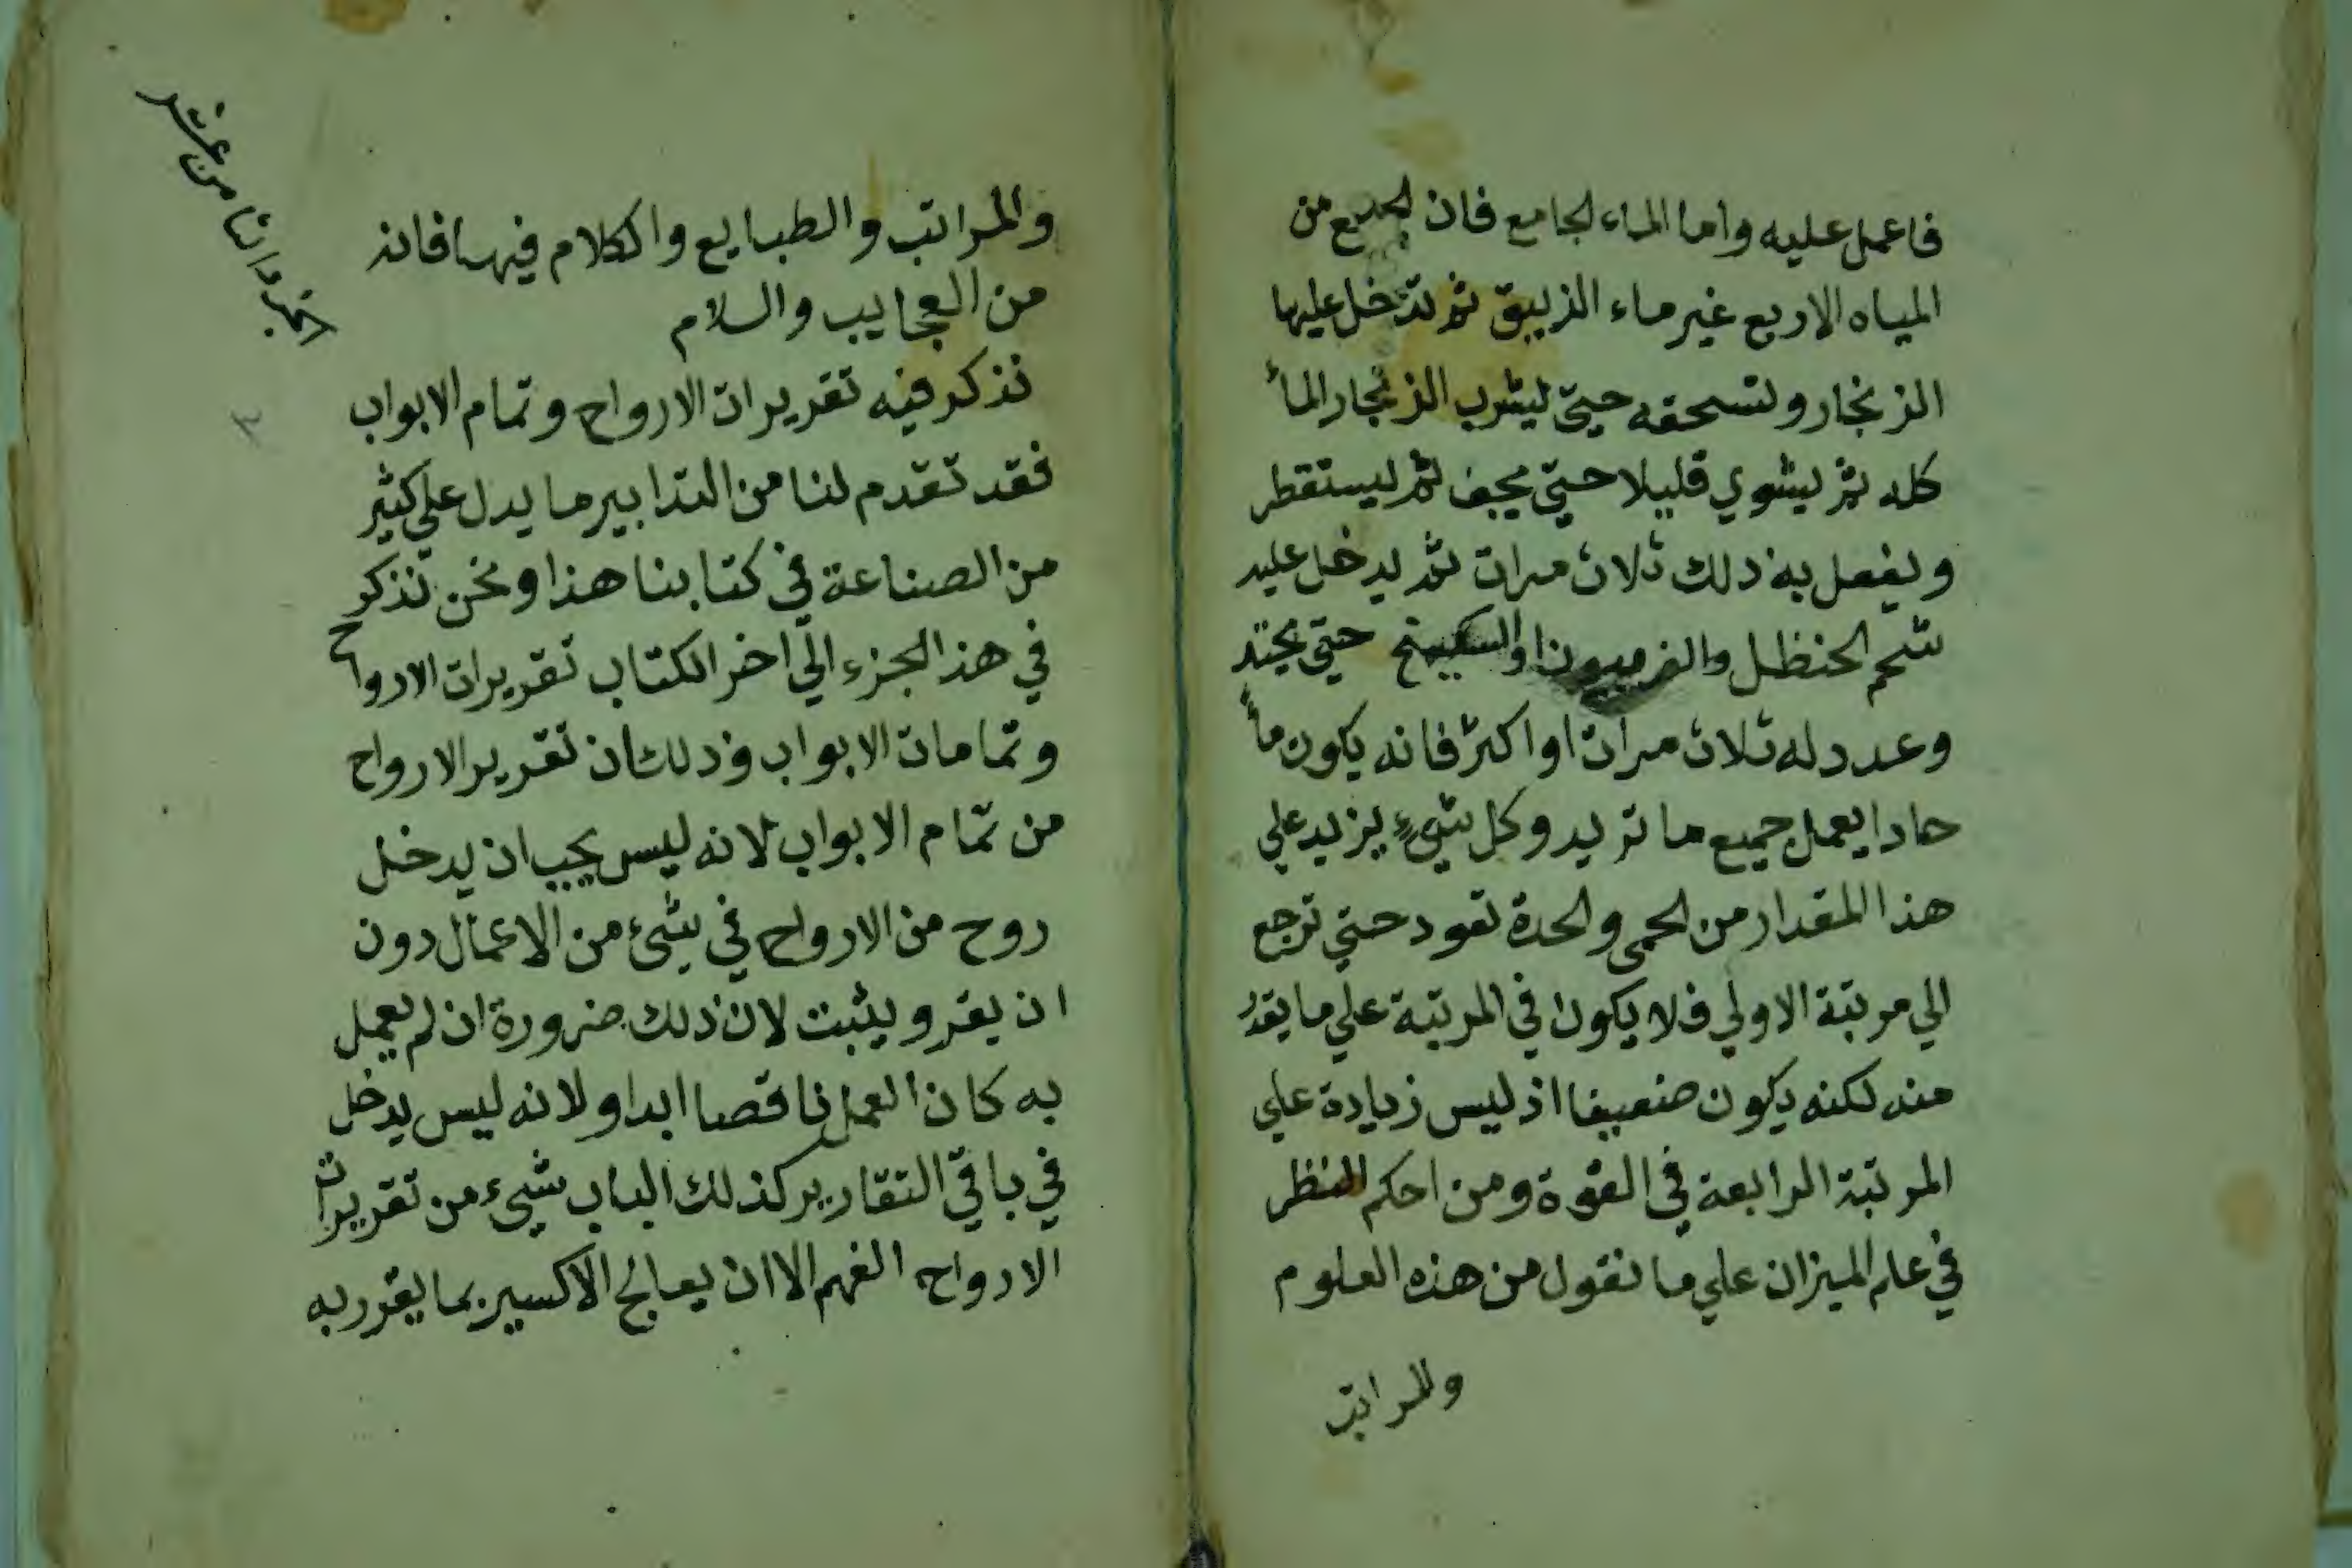 فاعمل عليه واما الماء الجامع فان الجميع من
المياه الاربع غير ماء الزيبق ثم تدخل عليها
الزنجار وتسحقه حتي يشرب الزنجار المأ
كله ثم يشوي قليلا حتي يجف ثم يستقطر
ويفعل به ذلك ثلاث مرات ثم يدخل عليه
شحم الحنظل والفربيون او السكبينج حتي يحتد
وعدد له ثلاث مرات او اكثر فانه يكون مأ
حادا يعمل جميع ما تريد وكل شيء يزيد علي
هذا المقدار من الحمى والحدة تعود حتي ترجع
الي مرتبة الاولي فلا يكون في المرتبة علي ما يقدر
منه لكنه يكون ضعيفا اذ ليس زيادة علي
المرتبة الرابعة في القوة ومن احكم النظر
في علم الميزان علي ما نقول من هذه العلوم
والمراتب
والمراتب والطبايع والكلام فيها فانه
من العجايب والسلام
نذكر فيه تقريرات الارواح وتمام الابواب
فقد تقدم لنا من التدابير ما يدل علي كثير
من الصناعة في كتابنا هذا ونحن نذكر
في هذ الجزء الي اخر الكتاب تقريرات الارواح
وتمامات الابواب وذلك ان تقرير الارواح
من تمام الابواب لانه ليس يجب ان يدخل
روح من الارواح في شئ من الاعمال دون
ان يقر ويثبت لان ذلك ضرورة ان لم يعمل
به كان العمل ناقصا ابدا ولانه ليس يدخل
في باقي التقارير كذلك الباب شيء من تقريرات
الارواح الفهم الا ان يعالج الاكسير بما يقرر به
من عشر